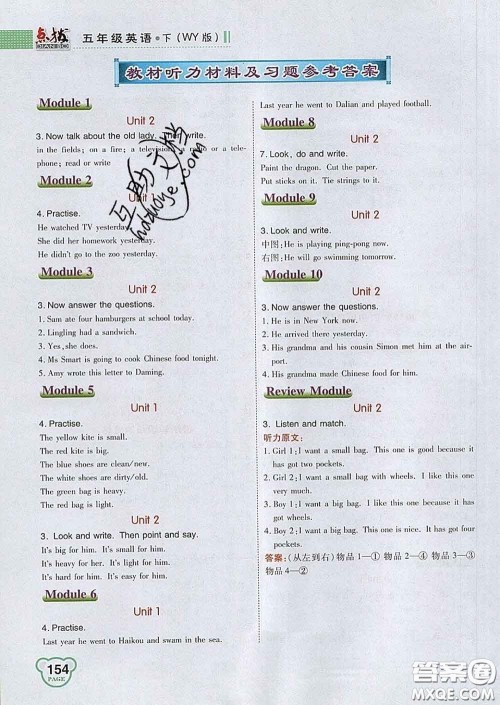 点拨
五年级英语·下（WY版）
教材听力材料及习题参考答案
Module 1
Unit 2
3. Now talk about the old lady. Then write.
in the fields; on a fire; a television, a radio or a tele-
phone; read or write
Module 2
Unit 1
4. Practise.
He watched TV yesterday.
She did her homework yesterday.
He didn't go to the zoo yesterday.
Module 3
Unit 2
3. Now answer the questions.
1. Sam ate four hamburgers at school today.
2. Lingling had a sandwich.
3. Yes, she does.
4. Ms Smart is going to cook Chinese food tonight.
5. Amy wrote this letter to Daming.
Module 5
Unit 1
4. Practise.
The yellow kite is small.
The red kite is big.
The blue shoes are clean/new.
The white shoes are dirty/old.
The green bag is heavy.
The red bag is light.
Unit 2
3. Look and write. Then point and say.
It's big for him. It's small for him.
It's heavy for her. It's light for him.
It's hard for him. It's easy for him.
Module 6
Unit 1
4. Practise.
Last year he went to Haikou and swam in the sea.
Last year he went to Dalian and played football.
Module 8
Unit 2
7. Look, do and write.
Paint the dragon. Cut the paper.
Put sticks on it. Tie strings to it.
Module 9
Unit 2
3. Look and write.
中图: He is playing ping-pong now.
右图: He will go swimming tomorrow.
Module 10
Unit 2
3. Now answer the questions.
1. He is in New York now.
2. He arrived there yesterday.
3. His grandma and his cousin Simon met him at the air-
port.
4. His grandma made Chinese food for him.
Review Module
Unit 2
3. Listen and match.
听力原文:
1. Girl 1: I want a small bag. This one is good because it
has got two pockets.
2. Girl 2: I want a small bag with wheels. I like this one
very much.
3. Boy 1: I want a big bag. I like this one because it has
got wheels.
4. Boy 2: I want a big bag. This one is nice. It has got four
pockets.
答案:（从左到右）物品1—① 物品2—④ 物品3—③
物品4—②
154
PAGE
答案圈
MXQE.COM